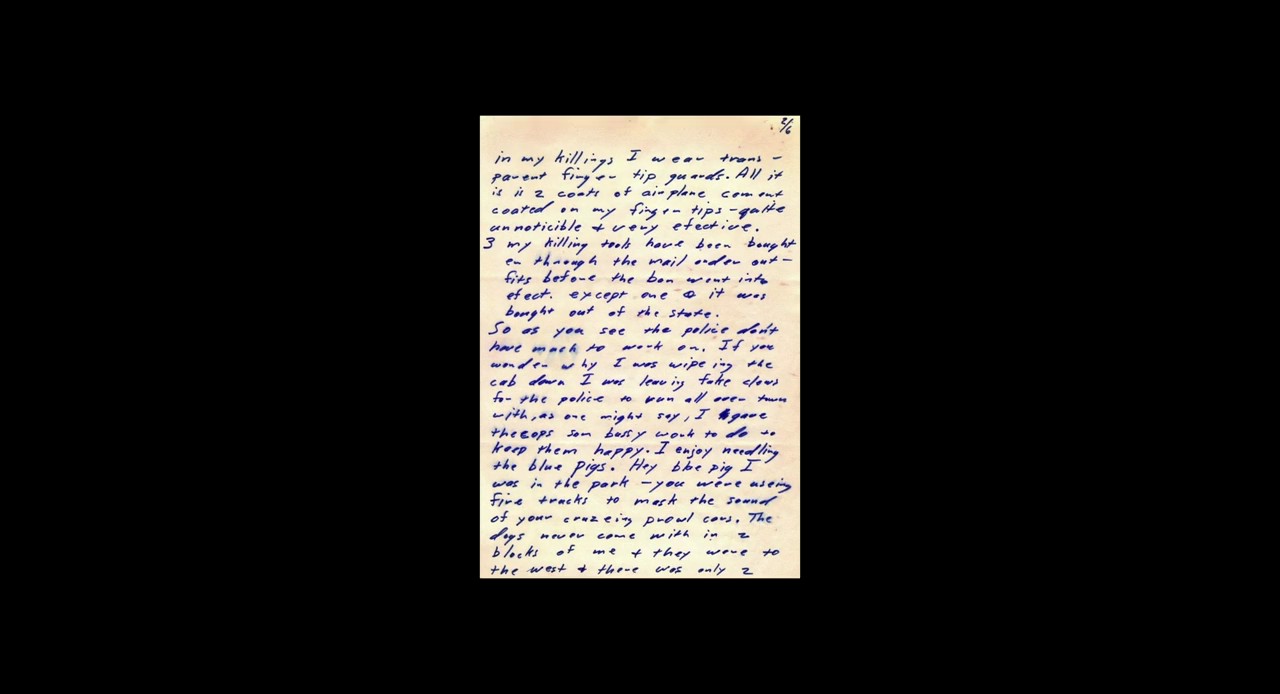 2/6
in my killings I wear trans-
parent finger tip guards. All it
is is 2 coats of airplane coment
coated on my finger tips-quite
unnoticible + very efective.
3 my killing tools have been bought
en through the mail order out-
fits before the ban went into
efect. except one & it was
bought out of the state.
So as you see the police don't
have much to work on. If you
wonder why I was wipeing the
cab down I was leaving fake clews
for the police to run all over town
with, as one might say, I gave
the cops som bussy work to do to
keep them happy. I enjoy needling
the blue pigs. Hey blue pig I
was in the park -you were useing
fire trucks to mask the sound
of your cruzeing prowl cars. The
dogs never came with in 2
blocks of me + they were to
the west + there was only 2